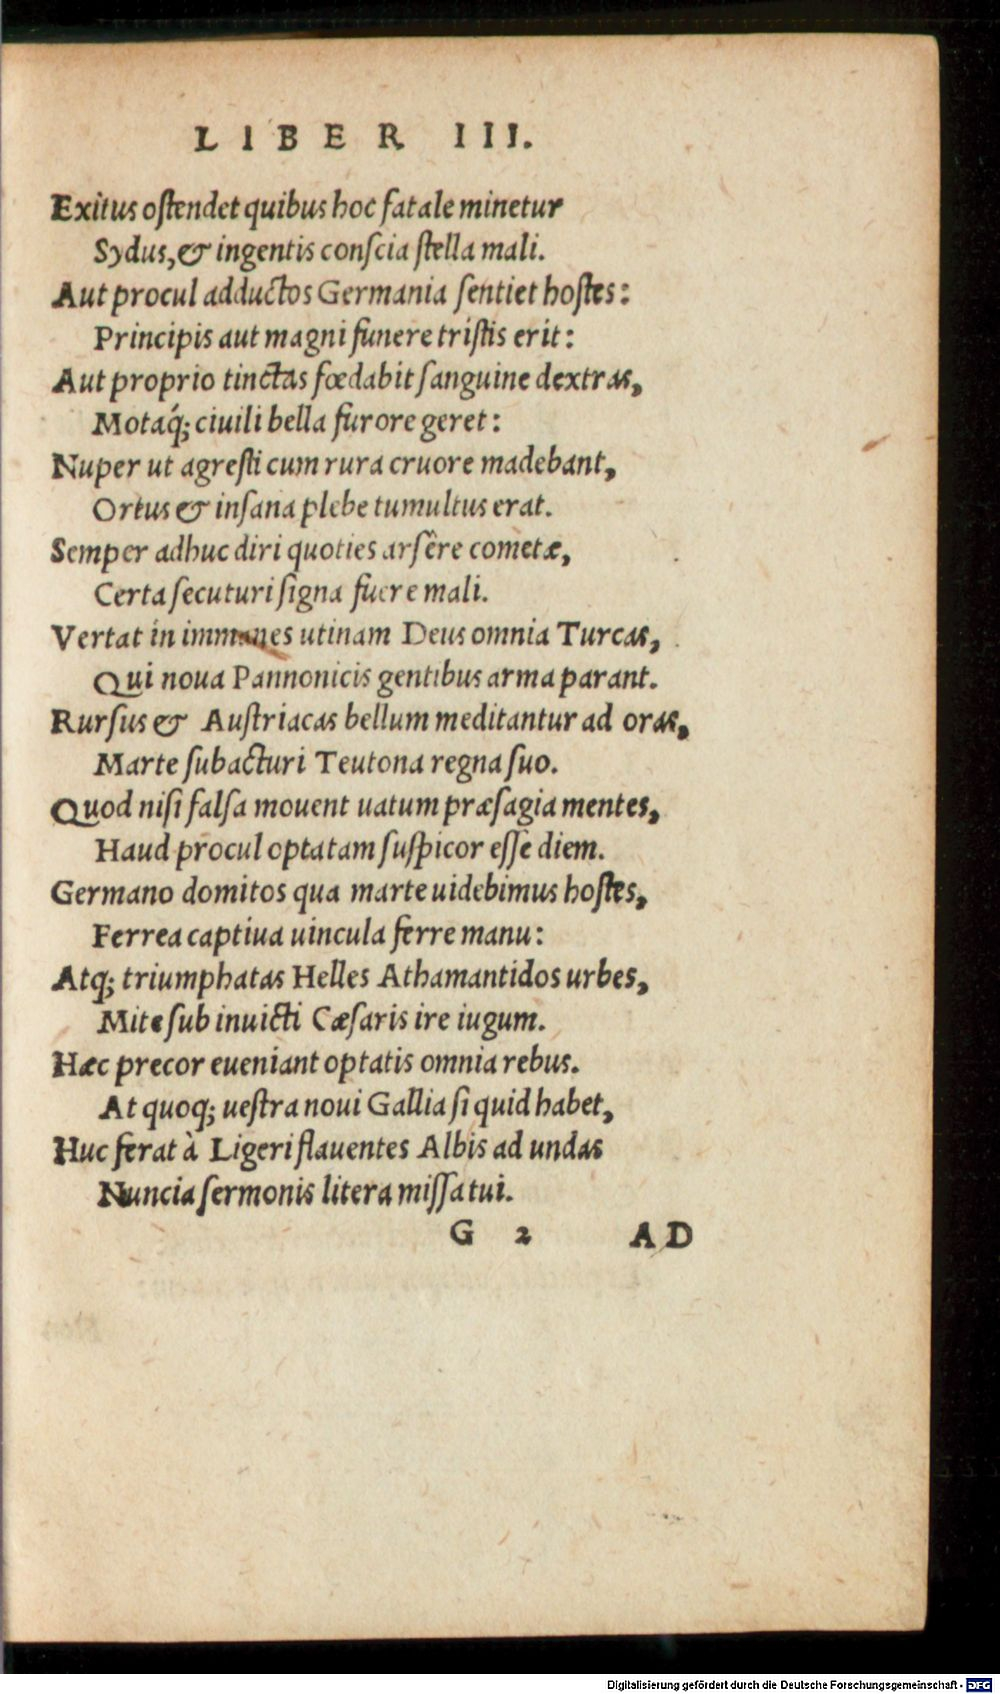 LIBER III.
Exitus ostendet quibus hoc fatale minetur
Sydus, & ingentis conscia stella mali.
Aut procul adductos Germania sentiet hostes:
Principis aut magni funere tristis erit:
Aut proprio tinctas fœdabit sanguine dextras,
Motaq́; ciuili bella furore geret:
Nuper ut agresti cum rura cruore madebant,
Ortus & insana plebe tumultus erat.
Semper adhuc diri quoties arsêre cometæ,
Certa secuturi signa fuere mali.
Vertat in immanes utinam Deus omnia Turcas,
Qui noua Pannonicis gentibus arma parant.
Rursus & Austriacas bellum meditantur ad oras,
Marte subacturi Teutona regna suo.
Quod nisi falsa mouent uatum præsagia mentes,
Haud procul optatam suspicor esse diem.
Germano domitos qua marte uidebimus hostes,
Ferrea captiua uincula ferre manu:
Atq; triumphatas Helles Athamantidos urbes,
Mite sub inuicti Cæsaris ire iugum.
Hæc precor eueniant optatis omnia rebus.
At quoq; uestra noui Gallia si quid habet,
Huc ferat à Ligeri flauentes Albis ad undas
Nuncia sermonis litera missa tui.
G 2 AD
Digitalisierung gefördert durch die Deutsche Forschungsgemeinschaft - DFG